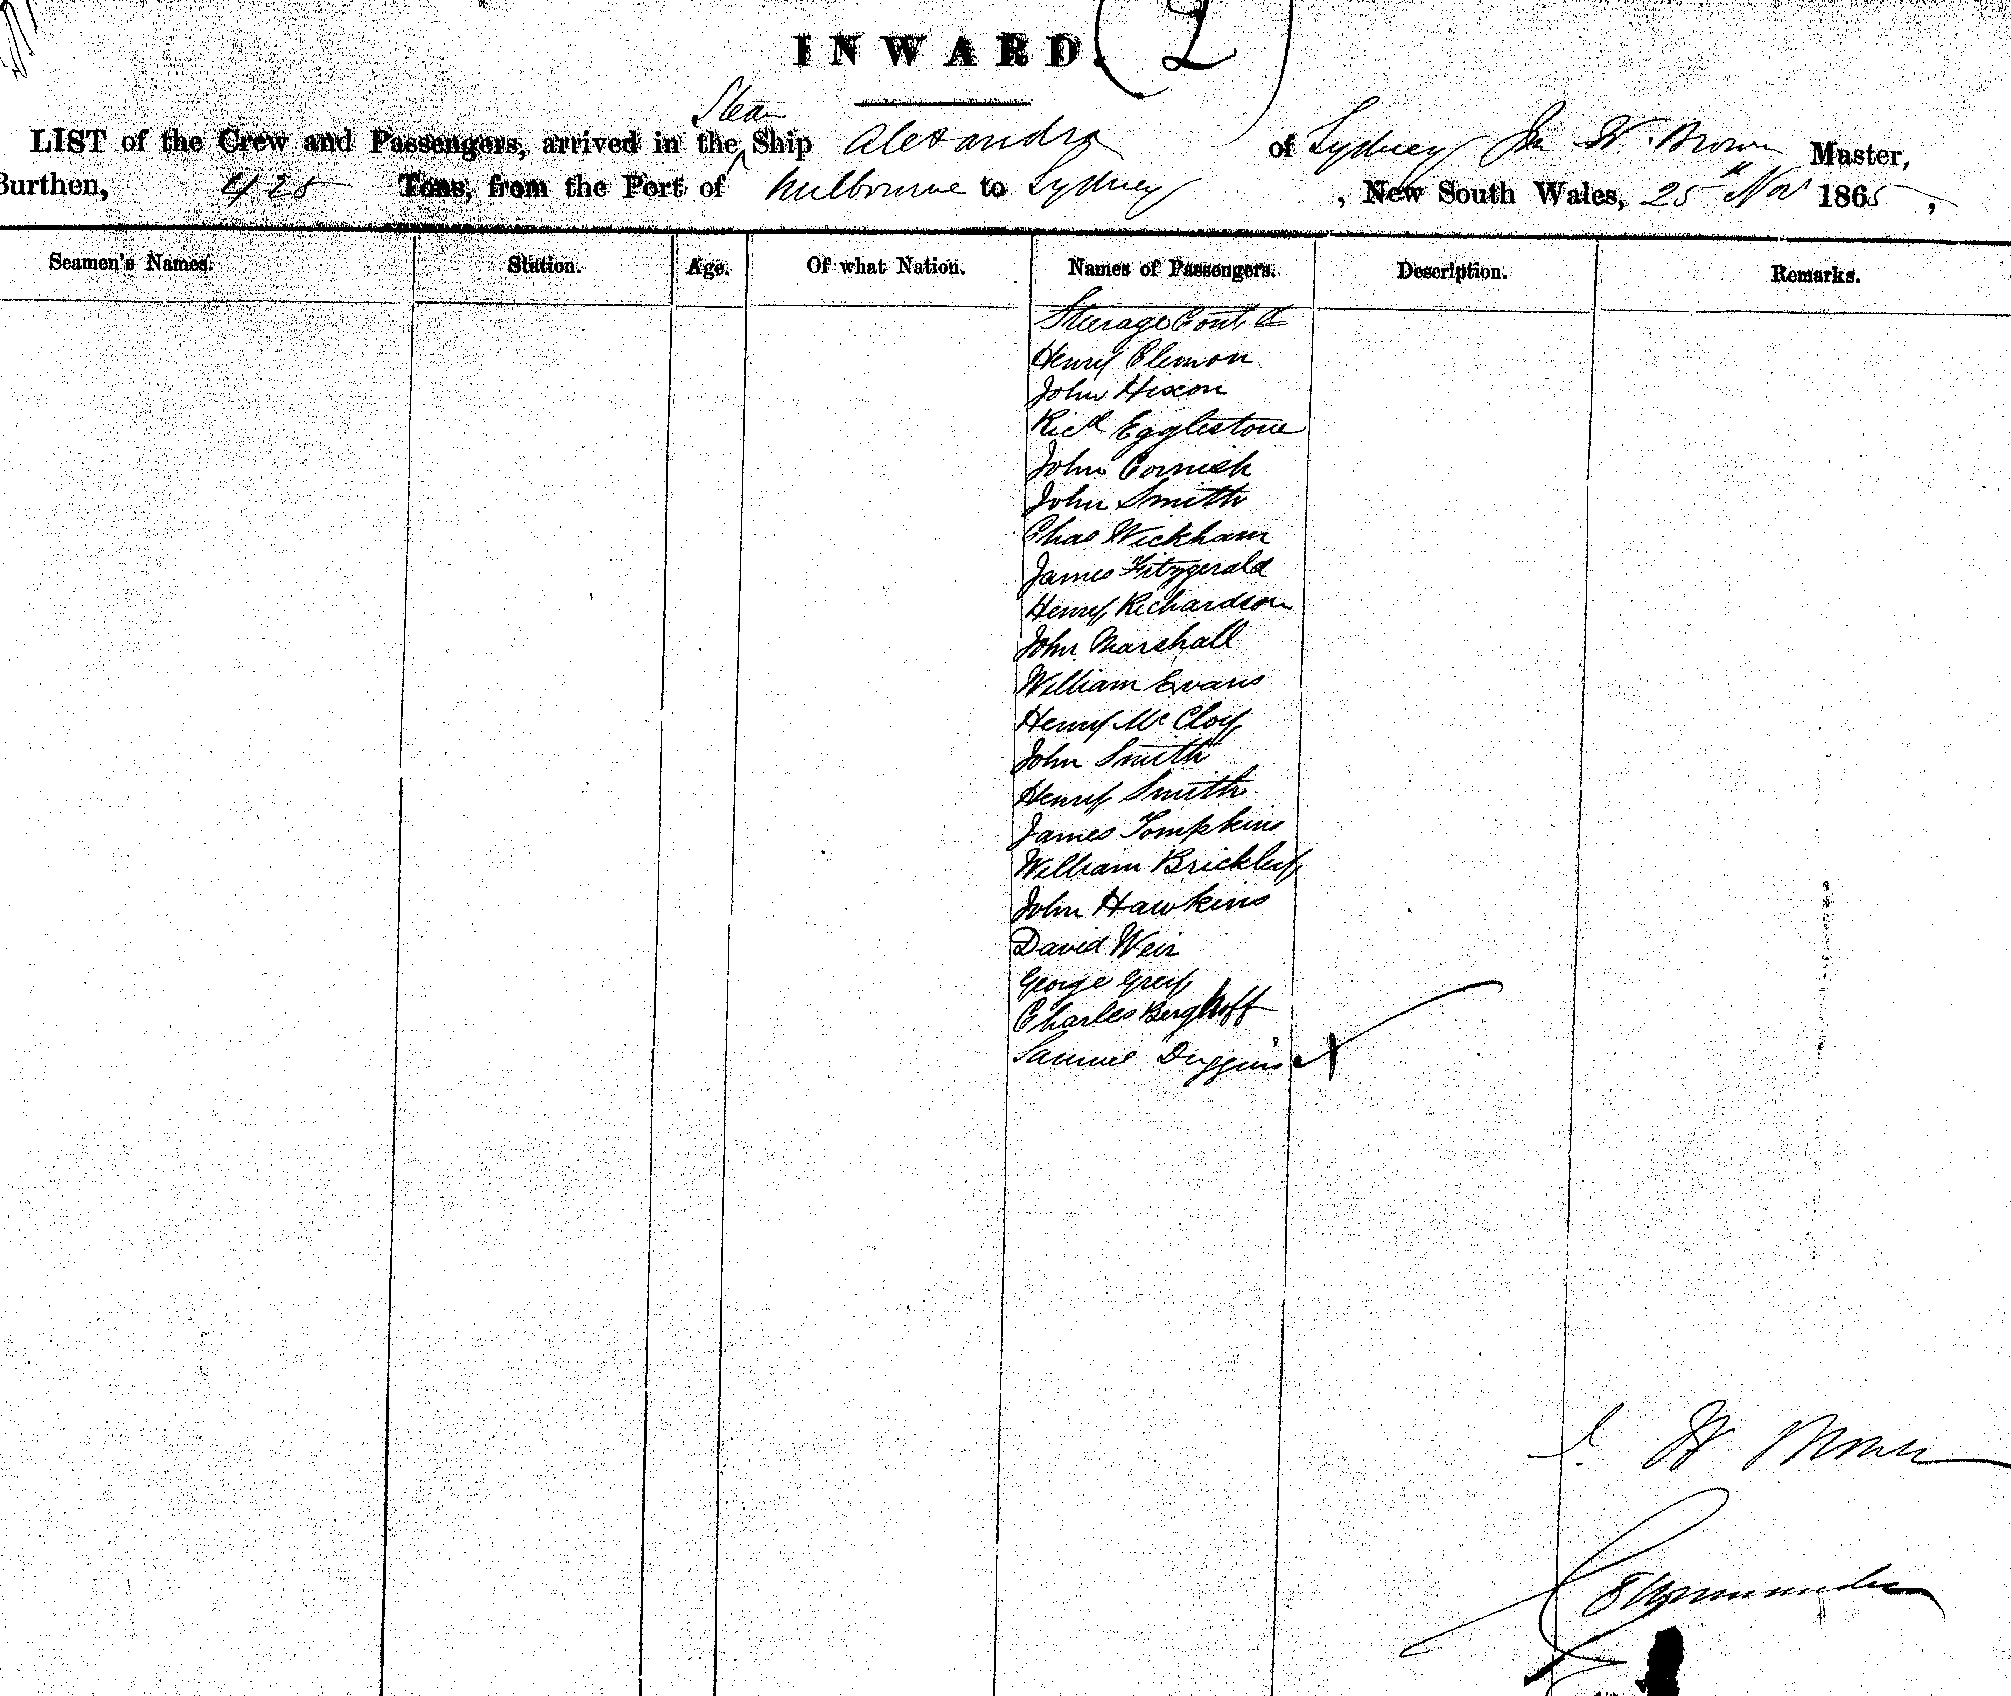 INWARD. (2)
Steam
LIST of the Crew and Passengers, arrived in the Ship Alexandra of Sydney Jn W. Brown Master,
Burthen, 425 Tons, from the Port of Melbourne to Sydney , New South Wales, 25th Nov 1865,
Seamen's Names. Station. Age. Of what Nation. Names of Passengers. Description. Remarks.
Steerage Contd
Henry Clemon
John Hixon
Richd Egglestone
John Cornish
John Smith
Chas Wickham
James Fitzgerald
Henry Richardson
John Marshall
William Evans
Henry McCloy
John Smith
Henry Smith
James Tompkins
William Brickley
John Hawkins
David Weir
George Grey
Charles Berghoff
Samuel Duggins
J. W Brown
Commander